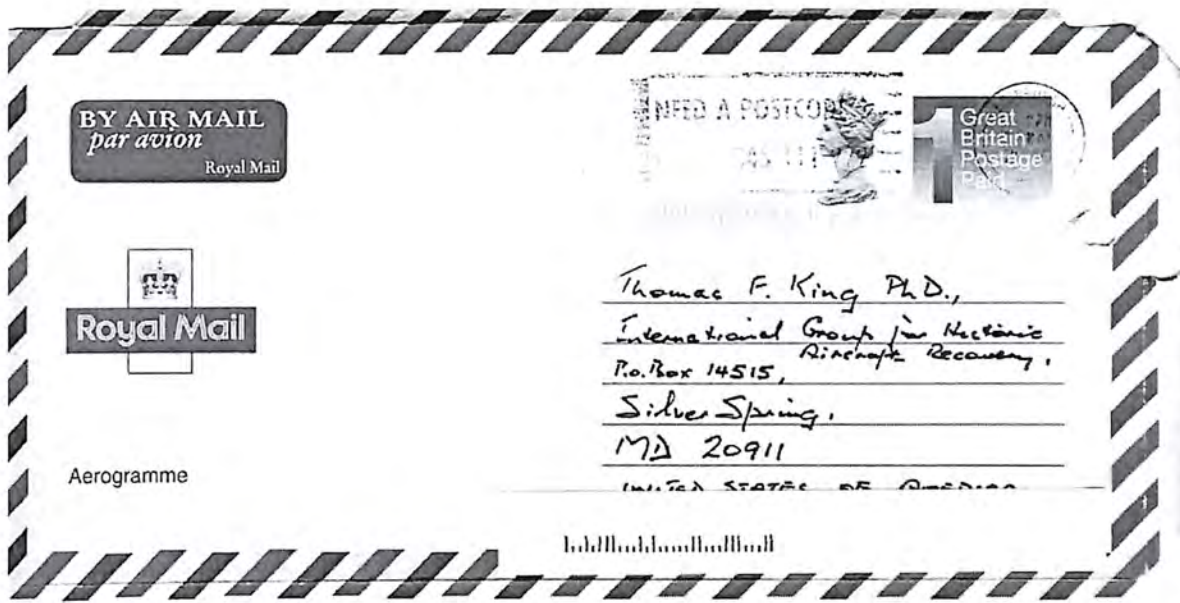 BY AIR MAIL
par avion
Royal Mail
NEED A POSTCOD
Great
Britain
Postage
Paid
1
Royal Mail
Aerogramme
Thomas F. King PhD.,
International Group for Historic
Aircraft Recovery,
P.O. Box 14515,
Silver Spring,
MD 20911
UNITED STATES OF AMERICA